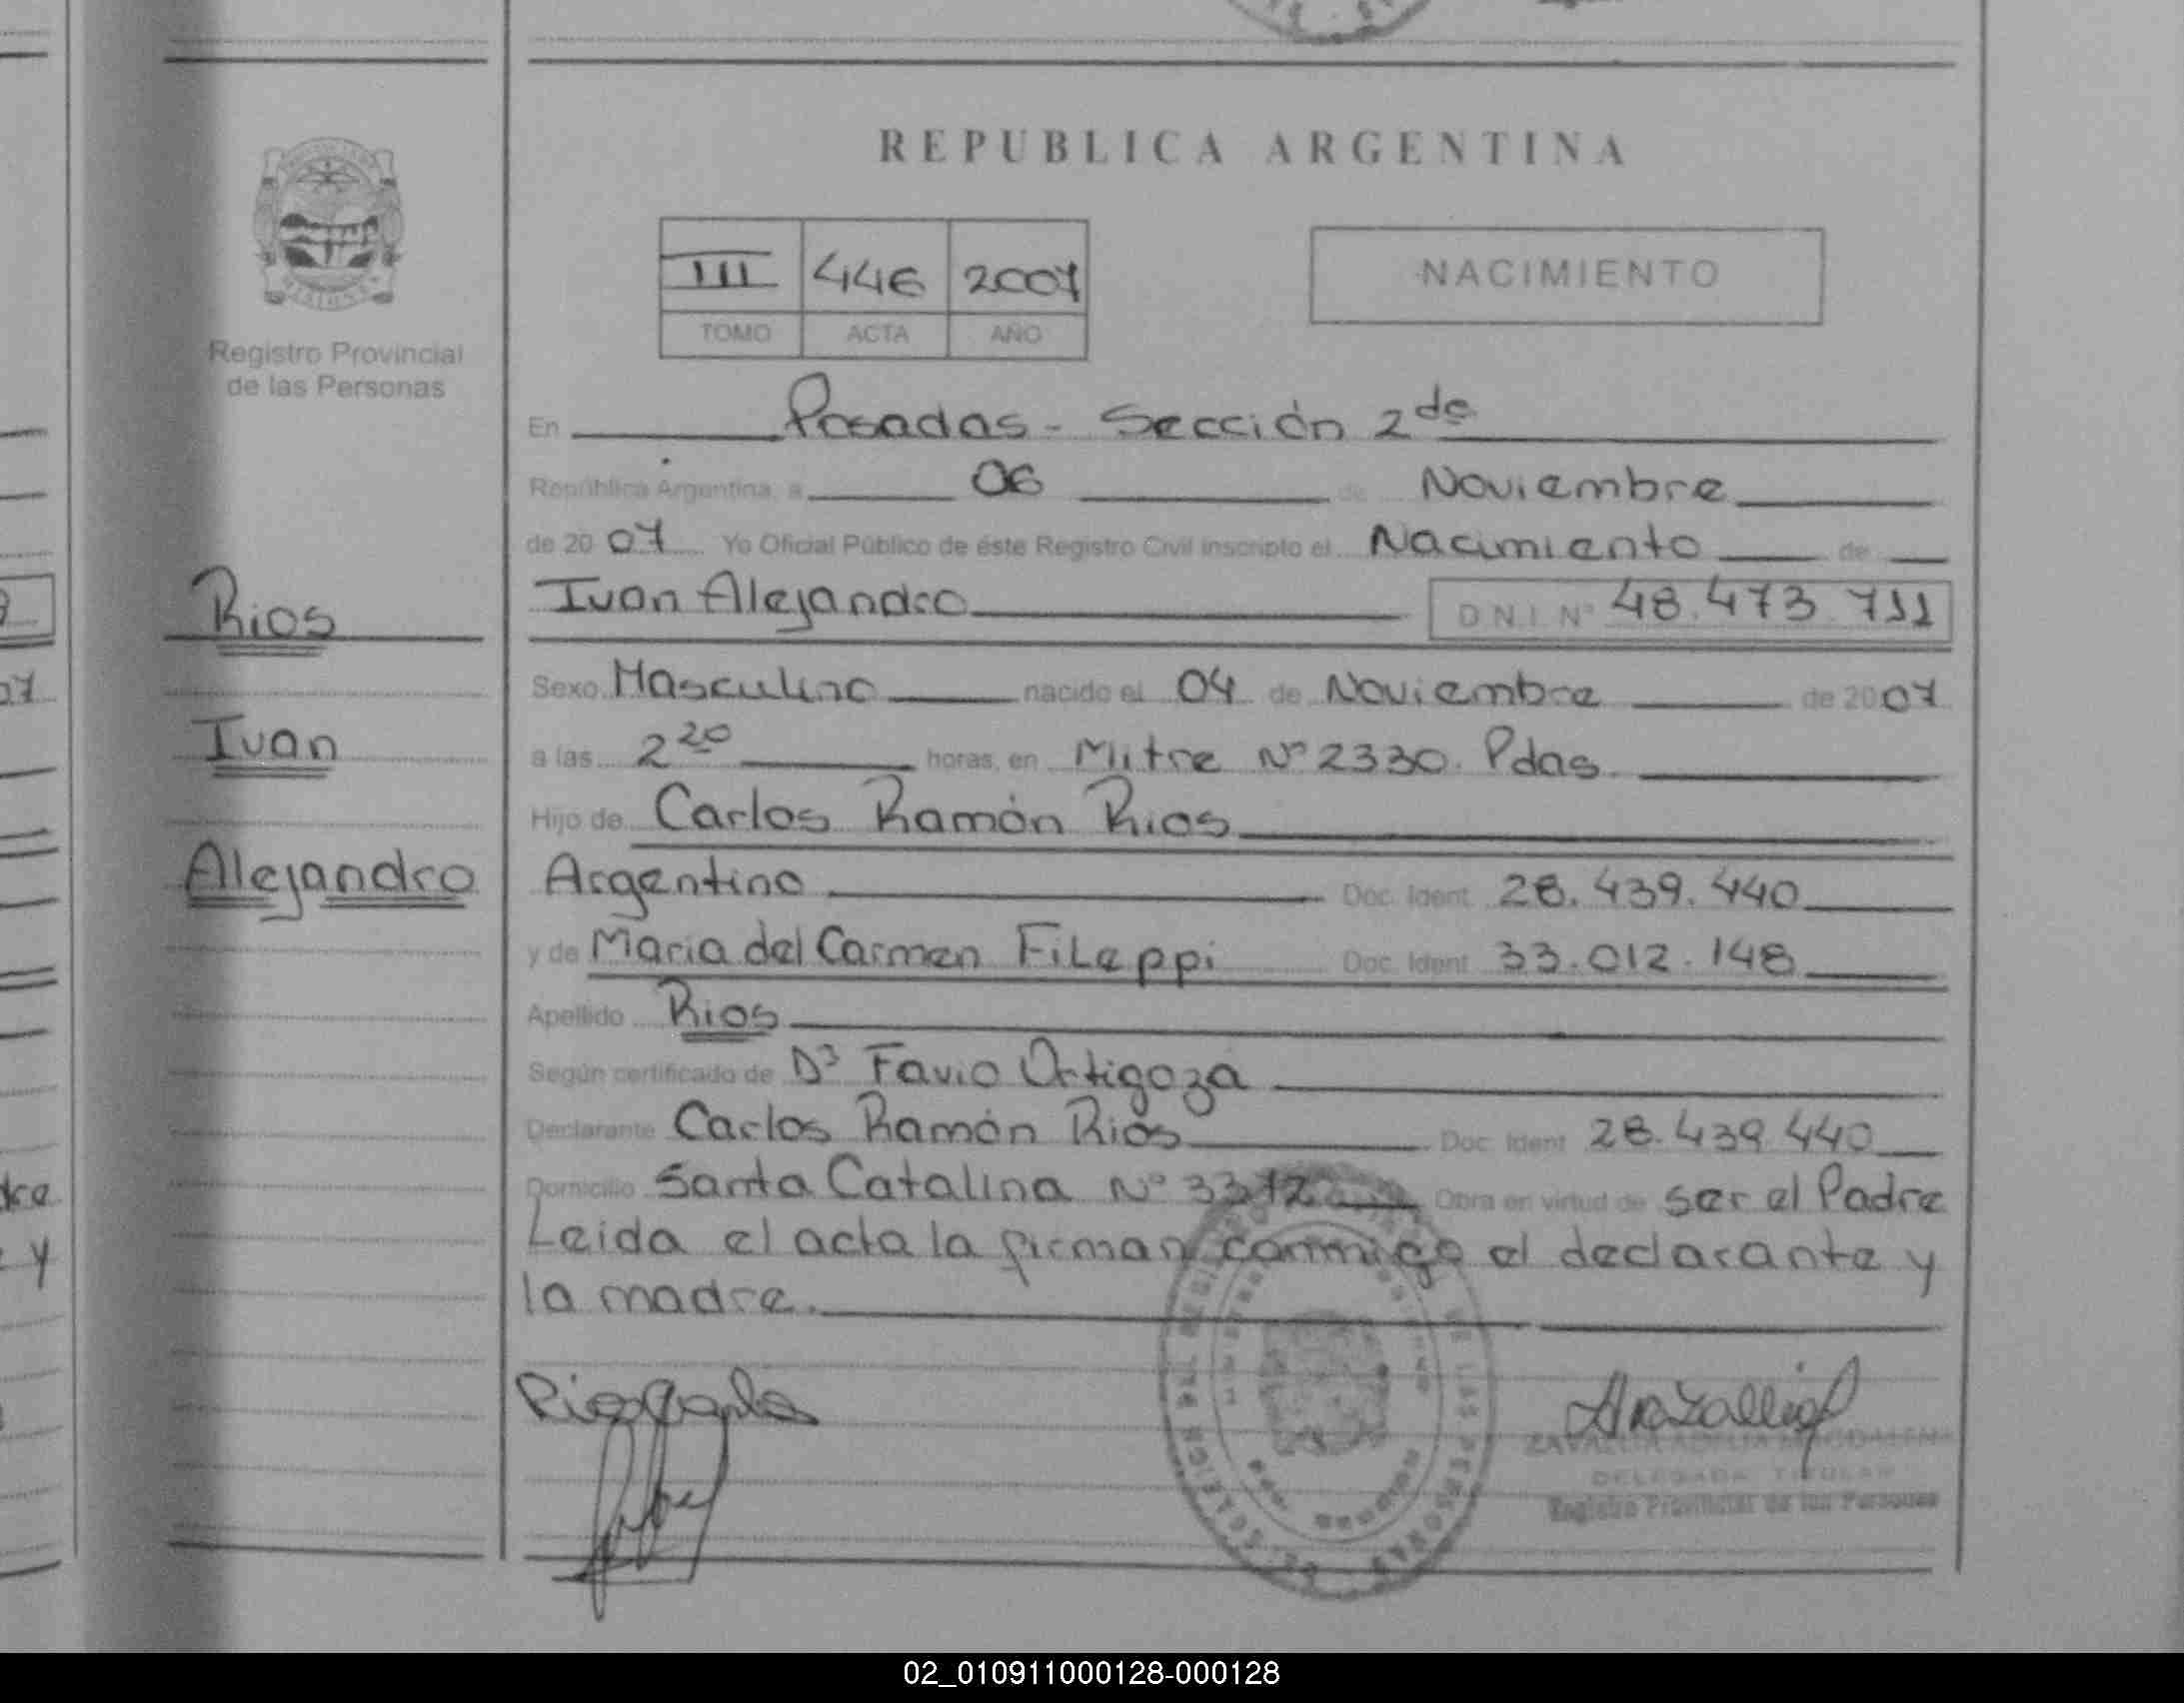 REPUBLICA ARGENTINA
III 446 2007
TOMO ACTA AÑO
NACIMIENTO
Registro Provincial
de las Personas
Rios
Ivan
Alejandro
En Posadas - Sección 2da
República Argentina, a 06 de Noviembre
de 2007 Yo Oficial Público de éste Registro Civil inscripto el Nacimiento de
Ivan Alejandro D.N.I. Nº 48.473.711
Sexo Masculino nacido el 04 de Noviembre de 2007
a las 2 20 horas, en Mitre Nº 2330. Pdas.
Hijo de Carlos Ramón Rios
Argentino Doc. Ident. 28.439.440
y de Maria del Carmen Fileppi Doc. Ident. 33.012.148
Apellido Rios
Según certificado de Dr Favio Ortigoza
Declarante Carlos Ramón Rios Doc. Ident. 28.439.440
Domicilio Santa Catalina Nº 3372 Obra en virtud de ser el Padre
Leida el acta la firman conmigo el declarante y
la madre.
Rios Carlos
DELEGADA TITULAR
Registro Provincial de las Personas
02_010911000128-000128